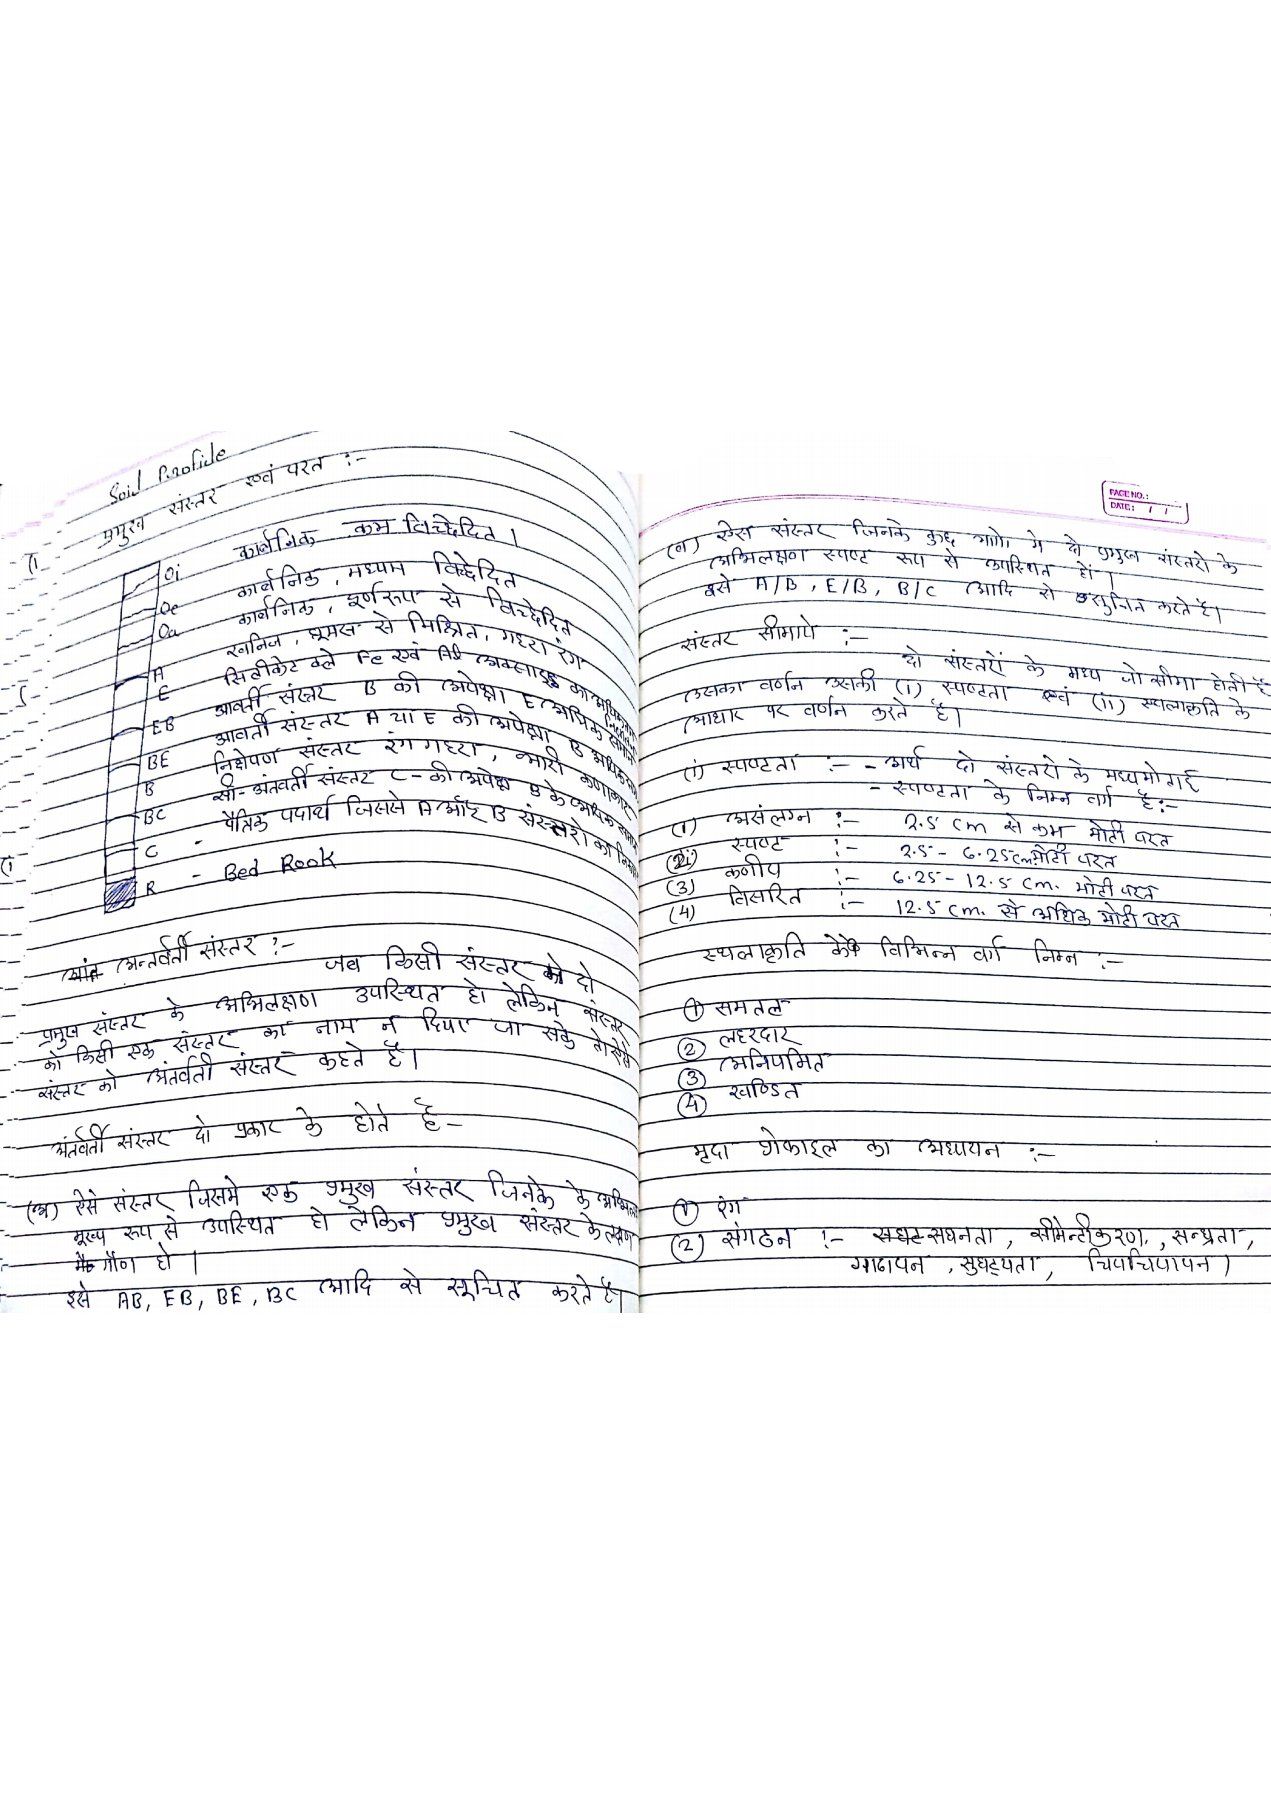 Soil Profile
प्रमुख संस्तर एवं परत :-
Oi कार्बनिक कम विच्छेदित ।
Oe कार्बनिक, मध्यम विच्छेदित
Oa कार्बनिक, पूर्णरूप से विच्छेदित
A खनिज, ह्यूमस से मिश्रित, गहरा रंग
E सिलीकेट क्ले Fe एवं Al आक्साइड का अधिकतम
EB आवर्ती संस्तर B की अपेक्षा E अधिक समान
BE आवर्ती संस्तर A या E की अपेक्षा B अधिक
B निक्षेपण संस्तर रंग गहरा, भारी कणाकार
BC सी-अंतवर्ती संस्तर C-की अपेक्षा B के अधिक समान
C - पैत्रिक पदार्थ जिससे A और B संस्तरो का
R - Bed Rook
अन्तर्वर्ती संस्तर :-
जब किसी संस्तर को दो
प्रमुख संस्तर के अभिलक्षण उपस्थित हो लेकिन संस्तर
को किसी एक संस्तर का नाम न दिया जा सके तो ऐसे
संस्तर को अंतर्वती संस्तर कहते है।
अंतर्वर्ती संस्तर दो प्रकार के होते है -
(अ) ऐसे संस्तर जिसमे एक प्रमुख संस्तर जिनके के
मुख्य रूप से उपस्थित हो लेकिन प्रमुख संस्तर के लक्षण
गौण हो ।
इसे AB, EB, BE, BC आदि से सूचित करते है।
PAGE NO.:
DATE: / /
(ब) ऐसे संस्तर जिनके कुछ भागो मे दो प्रमुख संस्तरो के
अभिलक्षण स्पष्ट रूप से उपस्थित हों ।
इसे A/B, E/B, B/C आदि से सूचित करते है।
संस्तर सीमाये :-
दो संस्तरों के मध्य जो सीमा होती है
उसका वर्णन उसकी (i) स्पष्टता एवं (ii) स्थलाकृति के
आधार पर वर्णन करते है।
(i) स्पष्टता :- - अर्थ दो संस्तरो के मध्य मोटाई
- स्पष्टता के निम्न वर्ग है :-
(1) असंलग्न :- 2.5 cm से कम मोटी परत
(2) स्पष्ट :- 2.5 - 6.25 cm मोटी परत
(3) क्रमीय :- 6.25 - 12.5 cm. मोटी परत
(4) विसरित :- 12.5 cm. से अधिक मोटी परत
स्थलाकृति के विभिन्न वर्ग निम्न :-
① समतल
② लहरदार
③ अनियमित
④ खण्डित
मृदा प्रोफाइल का अध्ययन :-
① रंग
② संगठन :- सघनता, सीमेन्टीकरण, सन्ध्रता,
गाढापन, सुघट्यता, चिपचिपापन ।